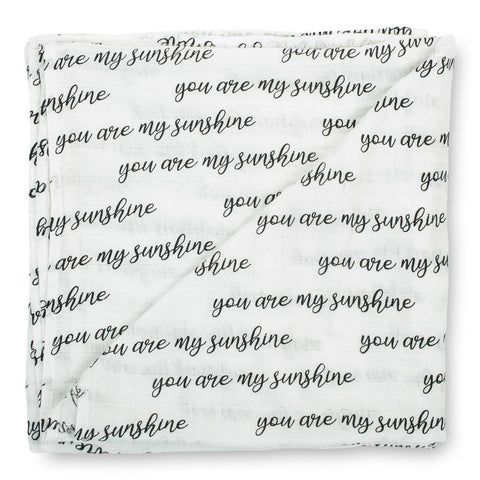 you are my sunshine
you are my sunshine
sunshine
you are my sunshine
you
you are my sunshine
shine
you
you a
my sunshine
you are my sunshine
you are my sunshine
shine
you are my
sunshine
you are my sunshine
you are
you are my sunshine
you are my sunshine
you are my sunshine
you are my sunshine
you are my sunshine